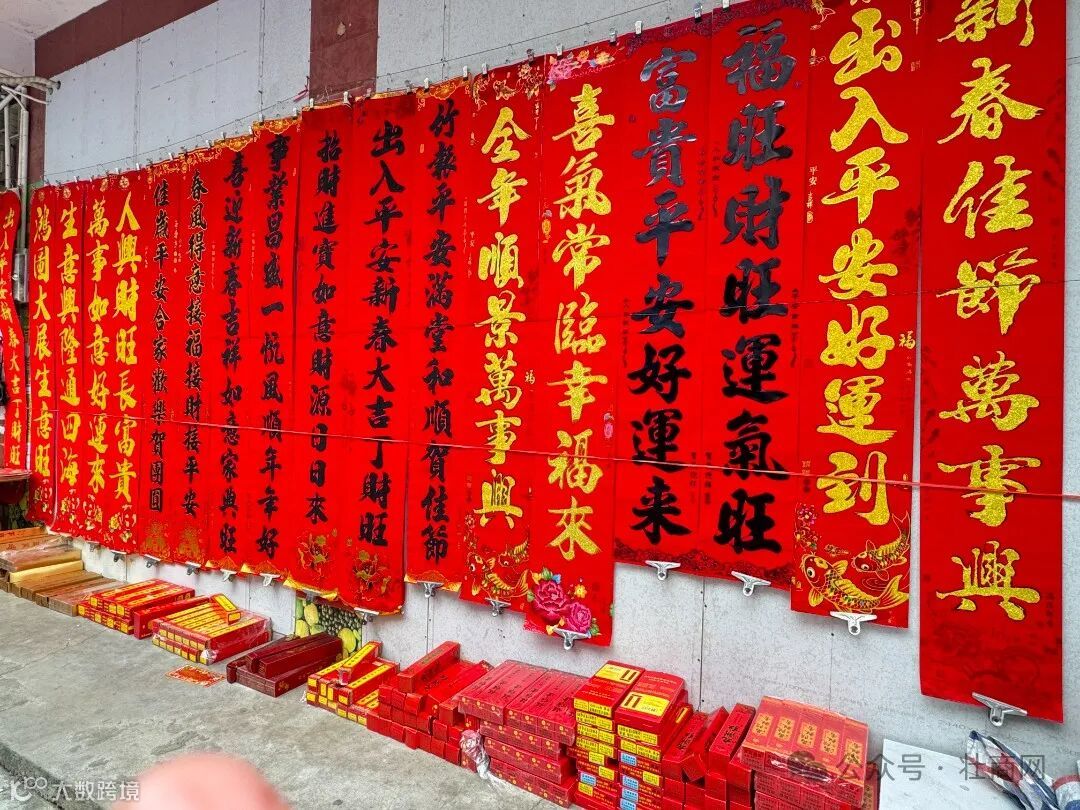 新春佳節萬事興
出入平安好運到
平安
福
福旺財旺運氣旺
富貴平安好運来
喜氣常臨幸福來
全年順景萬事興
福
竹報平安滿堂和順賀佳節
平安
出入平安新春大吉丁財旺
招財進寶如意財源日日來
事業昌盛一帆風順年年好
喜迎新春吉祥如意家興旺
春風得意接福接財接平安
佳歲平安合家歡樂賀團圓
人興財旺長富貴
萬事如意好運來
生意興隆通四海
鴻圖大展生意旺
出入平安新春大吉丁財旺
大数跨境
公众号 · 壮商网